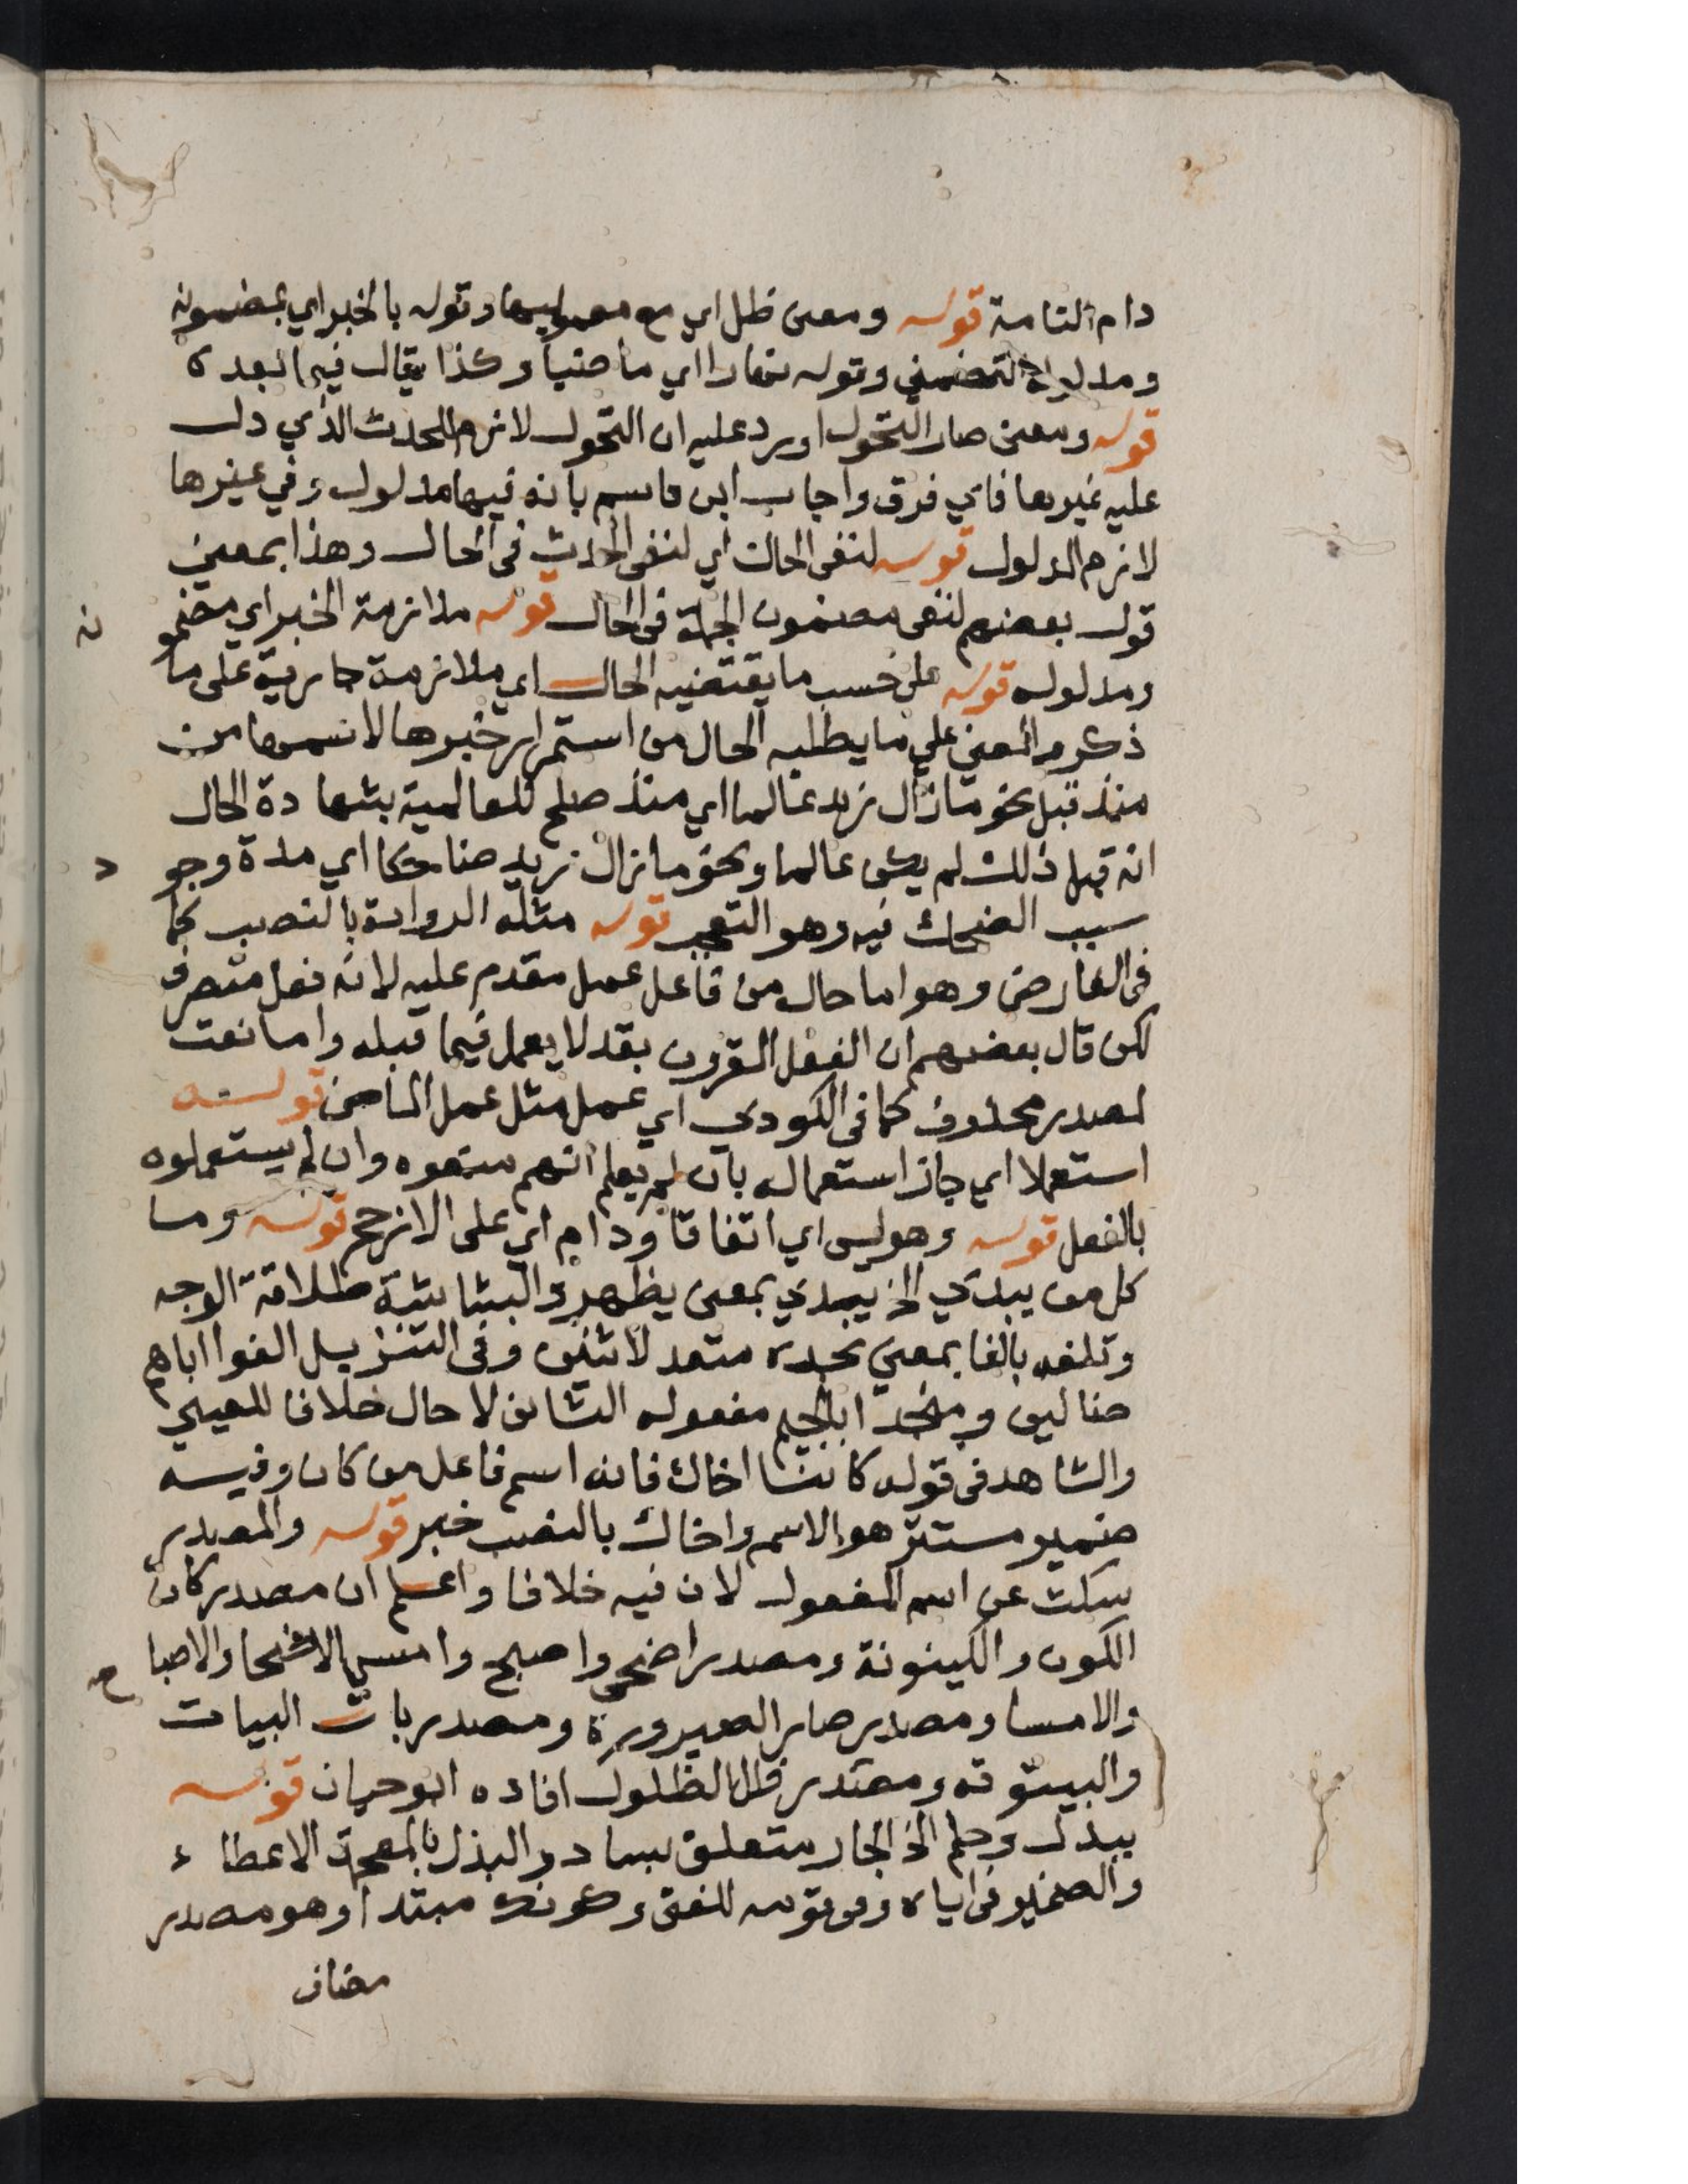 دام التامة قوله ومعنى ظل اي مع معموليها وقوله بالخبر اي بمضمونه
ومدلوله التضمني وقوله نهارا اي ماضيا وكذا يقال فيما بعده
قوله ومعنى صار التحول اورد عليه ان التحول لازم للحدث الذي دل
عليه غيرها فاي فرق واجاب ابن قاسم بانه فيها مدلول وفي غيرها
لازم المدلول قوله لنفي الحال اي لنفي الحدث في الحال وهذا بمعنى
قول بعضهم لنفي مضمون الجملة في الحال قوله ملازمة الخبر اي مضمو
ن
ومدلوله قوله على حسب ما يقتضيه الحال اي ملازمة جارية على ما
ذكر والمعنى على ما يطلبه الحال من استمرار خبرها لاسمها من
منذ قبل نحو ما زال زيد عالما اي منذ صلح للعالمية بشهادة الحال
انه قبل ذلك لم يكن عالما ونحو ما زال زيد ضاحكا اي مدة وجو
د
سبب الضحك فيه وهو التعجب قوله مثله الرواية بالنصب كما
في الفارضي وهو اما حال من فاعل عمل مقدم عليه لانه فعل متصرف
لكن قال بعضهم ان الفعل المقرون بقد لا يعمل فيما قبله واما نعت
لمصدر محذوف كما في المكودي اي عمل مثل عمل الماضي قوله
استعملا اي جاز استعماله بان لم يعلم انهم منعوه وان لم يستعملوه
بالفعل قوله وهو ليس اي اتفاقا ودام اي على الارجح قوله وما
كل من يبدي الخ يبدي بمعنى يظهر والبشاشة طلاقة الوجه
وتلفه بالفا بمعنى تجده متعد لاثنين وفي التنزيل الفوا اباهم
ضالين ومنجدا بالجيم مفعوله الثاني لا حال خلافا للعيني
والشاهد في قوله كائنا اخاك فانه اسم فاعل من كان وفيه
ضمير مستتر هو الاسم واخاك بالنصب خبر قوله والمصدر
سكت عن اسم المفعول لان فيه خلافا واعلم ان مصدر كان
الكون والكينونة ومصدر اضحى واصبح وامسى الاضحا والاصبا
ح
والامسا ومصدر صار الصيرورة ومصدر بات البيات
والبيتوته ومصدر ظل الظلول افاده ابو حيان قوله
ببذل وحلم الخ الجار متعلق بساد والبذل بالمعجمة الاعطاء
والضمير في اياه وفي قوله للفتى وكونك مبتدا وهو مصدر
مضاف